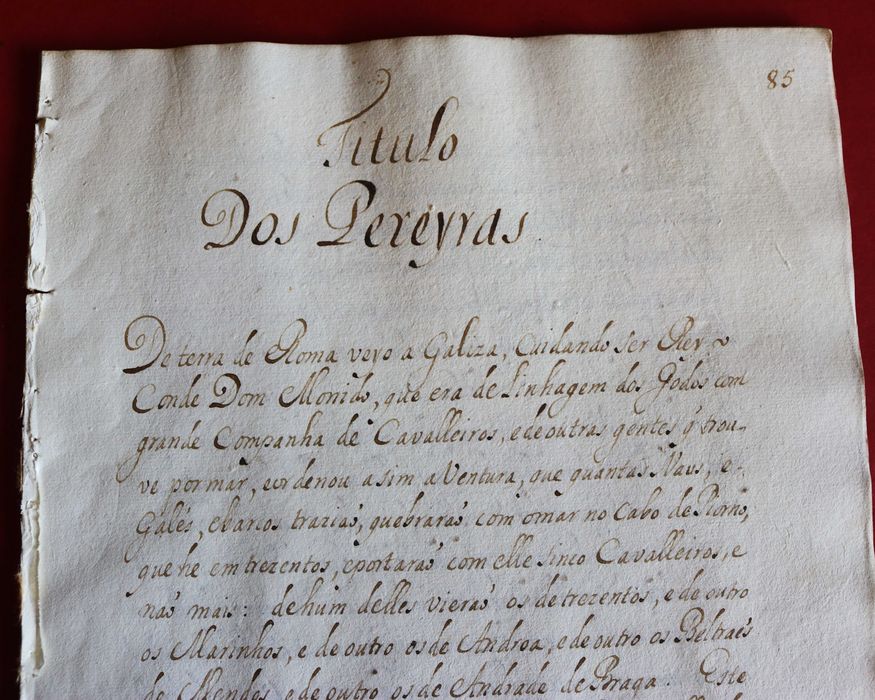 85
Titulo
Dos Pereyras
De terra de Roma veyo a Galiza, Cuidando ser Rey o
Conde Dom Monido, que era de Linhagem dos Godos com
grande Companha de Cavalleiros, e de outras gentes q̃ trou-
ve por mar, eordenou asim aVentura, que quantas Naus, e-
Galés, ebarcos trazias, quebraras com omar no Cabo de Piorno,
que he em trezentos, eportaras com elle sinco Cavalleiros, e
nas mais: dehum delles vieras os de trezentos, e de outro
os Marinhos, e de outro osde Androa, e de outro os Beltraes
de Mendes, e de outro os de Andrade de Braga. Este